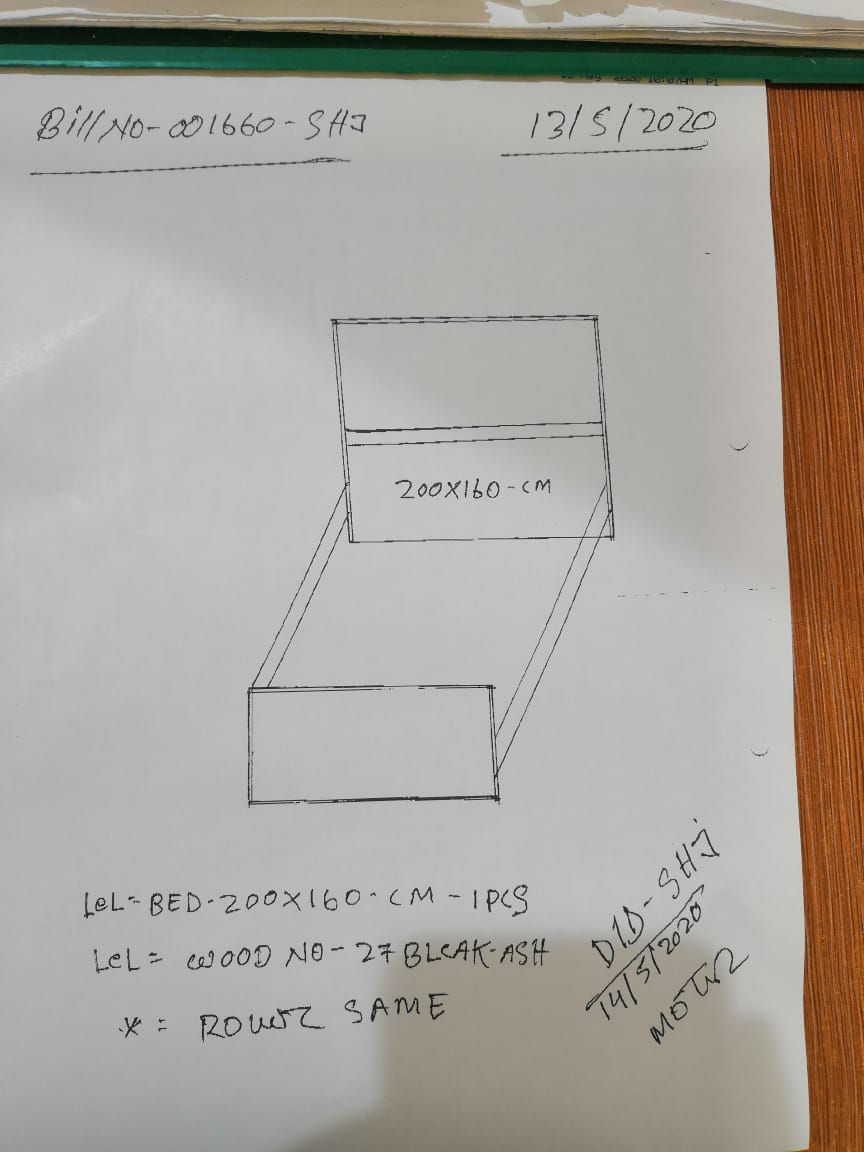 Bill NO-001660-SHJ
13/5/2020
200X160-CM
LeL-BED-200X160-CM-1PCS
LeL= WOOD NO-27 BLCAK-ASH
* = SAME
D/D-SHJ
14/5/2020